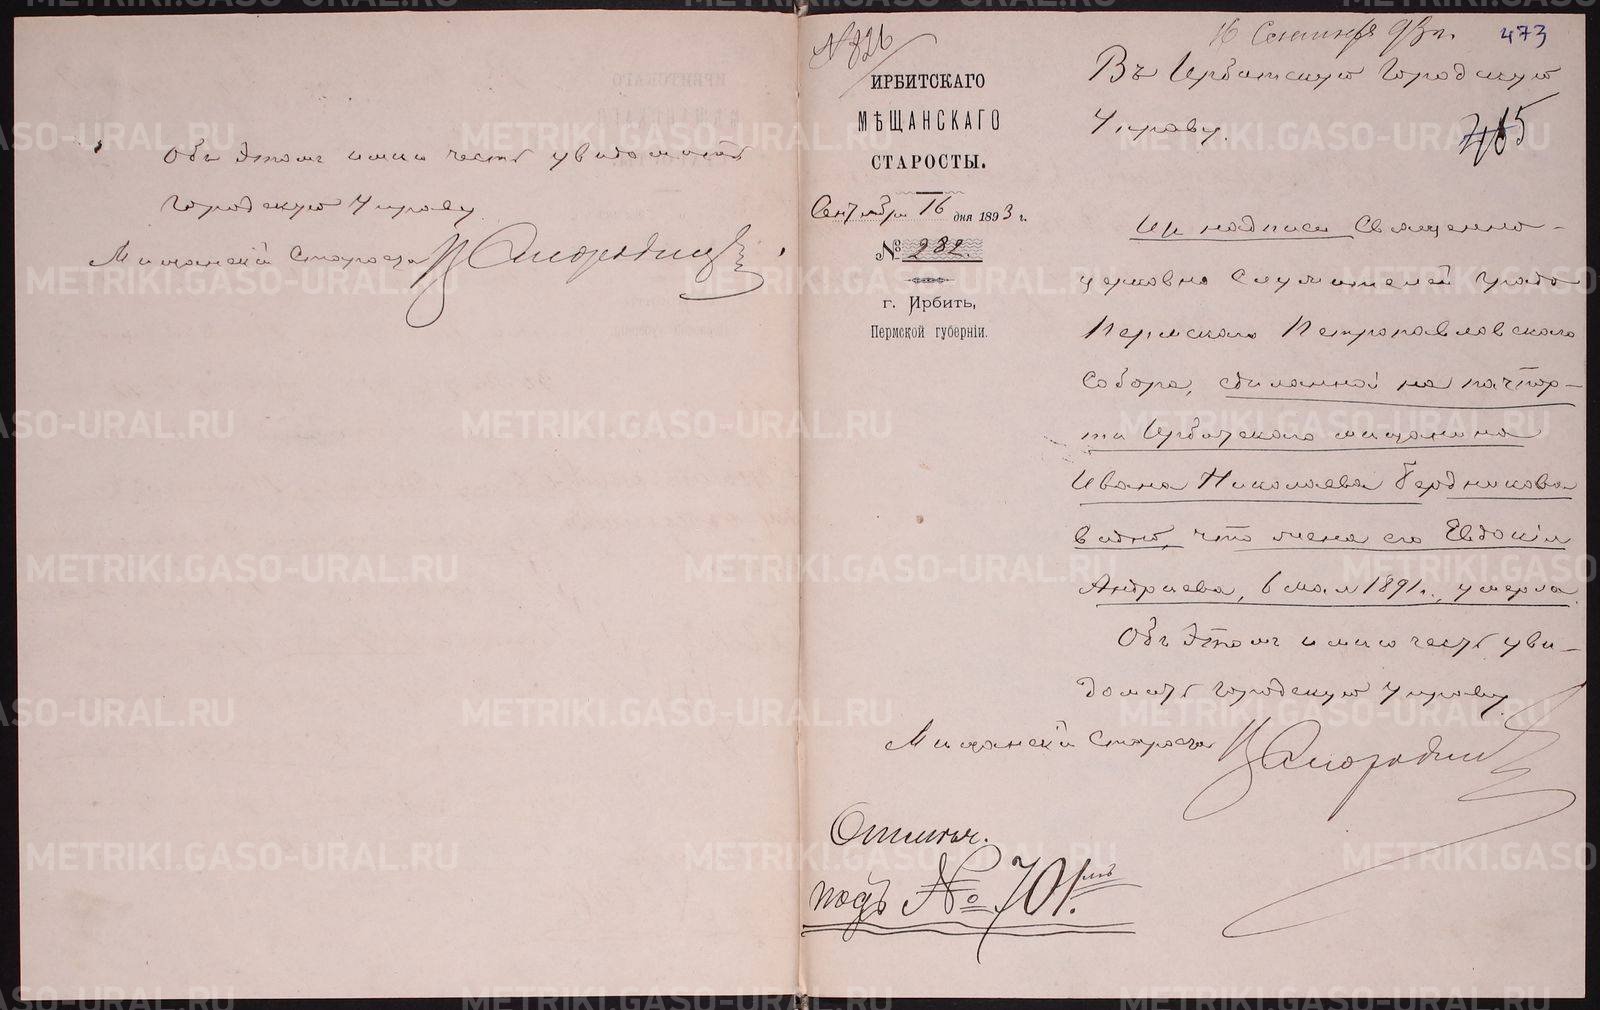 Объ этомъ имѣю честь увѣдомить
Городскую Управу
Мѣщанскій Староста
№ 826
ИРБИТСКАГО
МѢЩАНСКАГО
СТАРОСТЫ.
Сентября 16 дня 1893 г.
№ 282.
г. Ирбить,
Пермской губерніи.
16 Сентября 93 г.
473
Въ Ирбитскую Городскую
Управу.
465
Из надписи Священно-
церковно служителей градо
Пермскаго Петропавловскаго
Собора, сдѣланной на паспор-
тѣ Ирбитскаго мѣщанина
Ивана Николаева Бердникова
видно, что жена его Евдокія
Андреева, 6 мая 1891 г., умерла.
Объ этомъ имѣю честь увѣ-
домить Городскую Управу.
Мѣщанскій Староста
Отмѣч.
подъ № 701.мъ
METRIKI.GASO-URAL.RU